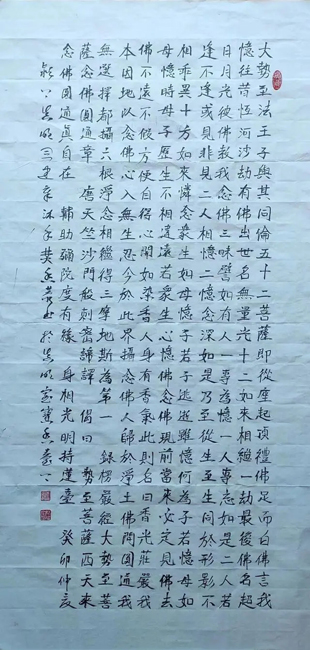 大勢至法王子與其同倫五十二菩薩即從座起頂禮佛足而白佛言我
憶往昔恆河沙劫有佛出世名無量光十二如來相繼一劫最後佛名超
日月光彼佛教我念佛三昧譬如有人一專為憶一人專忘如是二人若
逢不逢或見非見二人相憶二憶念深如是乃至從生至生同於形影不
相乖異十方如來憐念眾生如母憶子若子逃逝雖憶何為子若憶母如
母憶時母子歷生不相違遠若眾生心憶佛念佛現前當來必定見佛去
佛不遠不假方便自得心開如染香人身有香氣此則名曰香光莊嚴我
本因地以念佛心入無生忍今於此界攝念佛人歸於淨土佛問圓通我
無選擇都攝六根淨念相繼得三摩地斯為第一 錄楞嚴經大勢至菩
薩念佛圓通章 唐天竺沙門般剌密諦譯 偈曰 勢至菩薩西天來
念佛圓通真自在 輔助彌陀度有緣 身相光明持蓮臺 癸卯仲夏